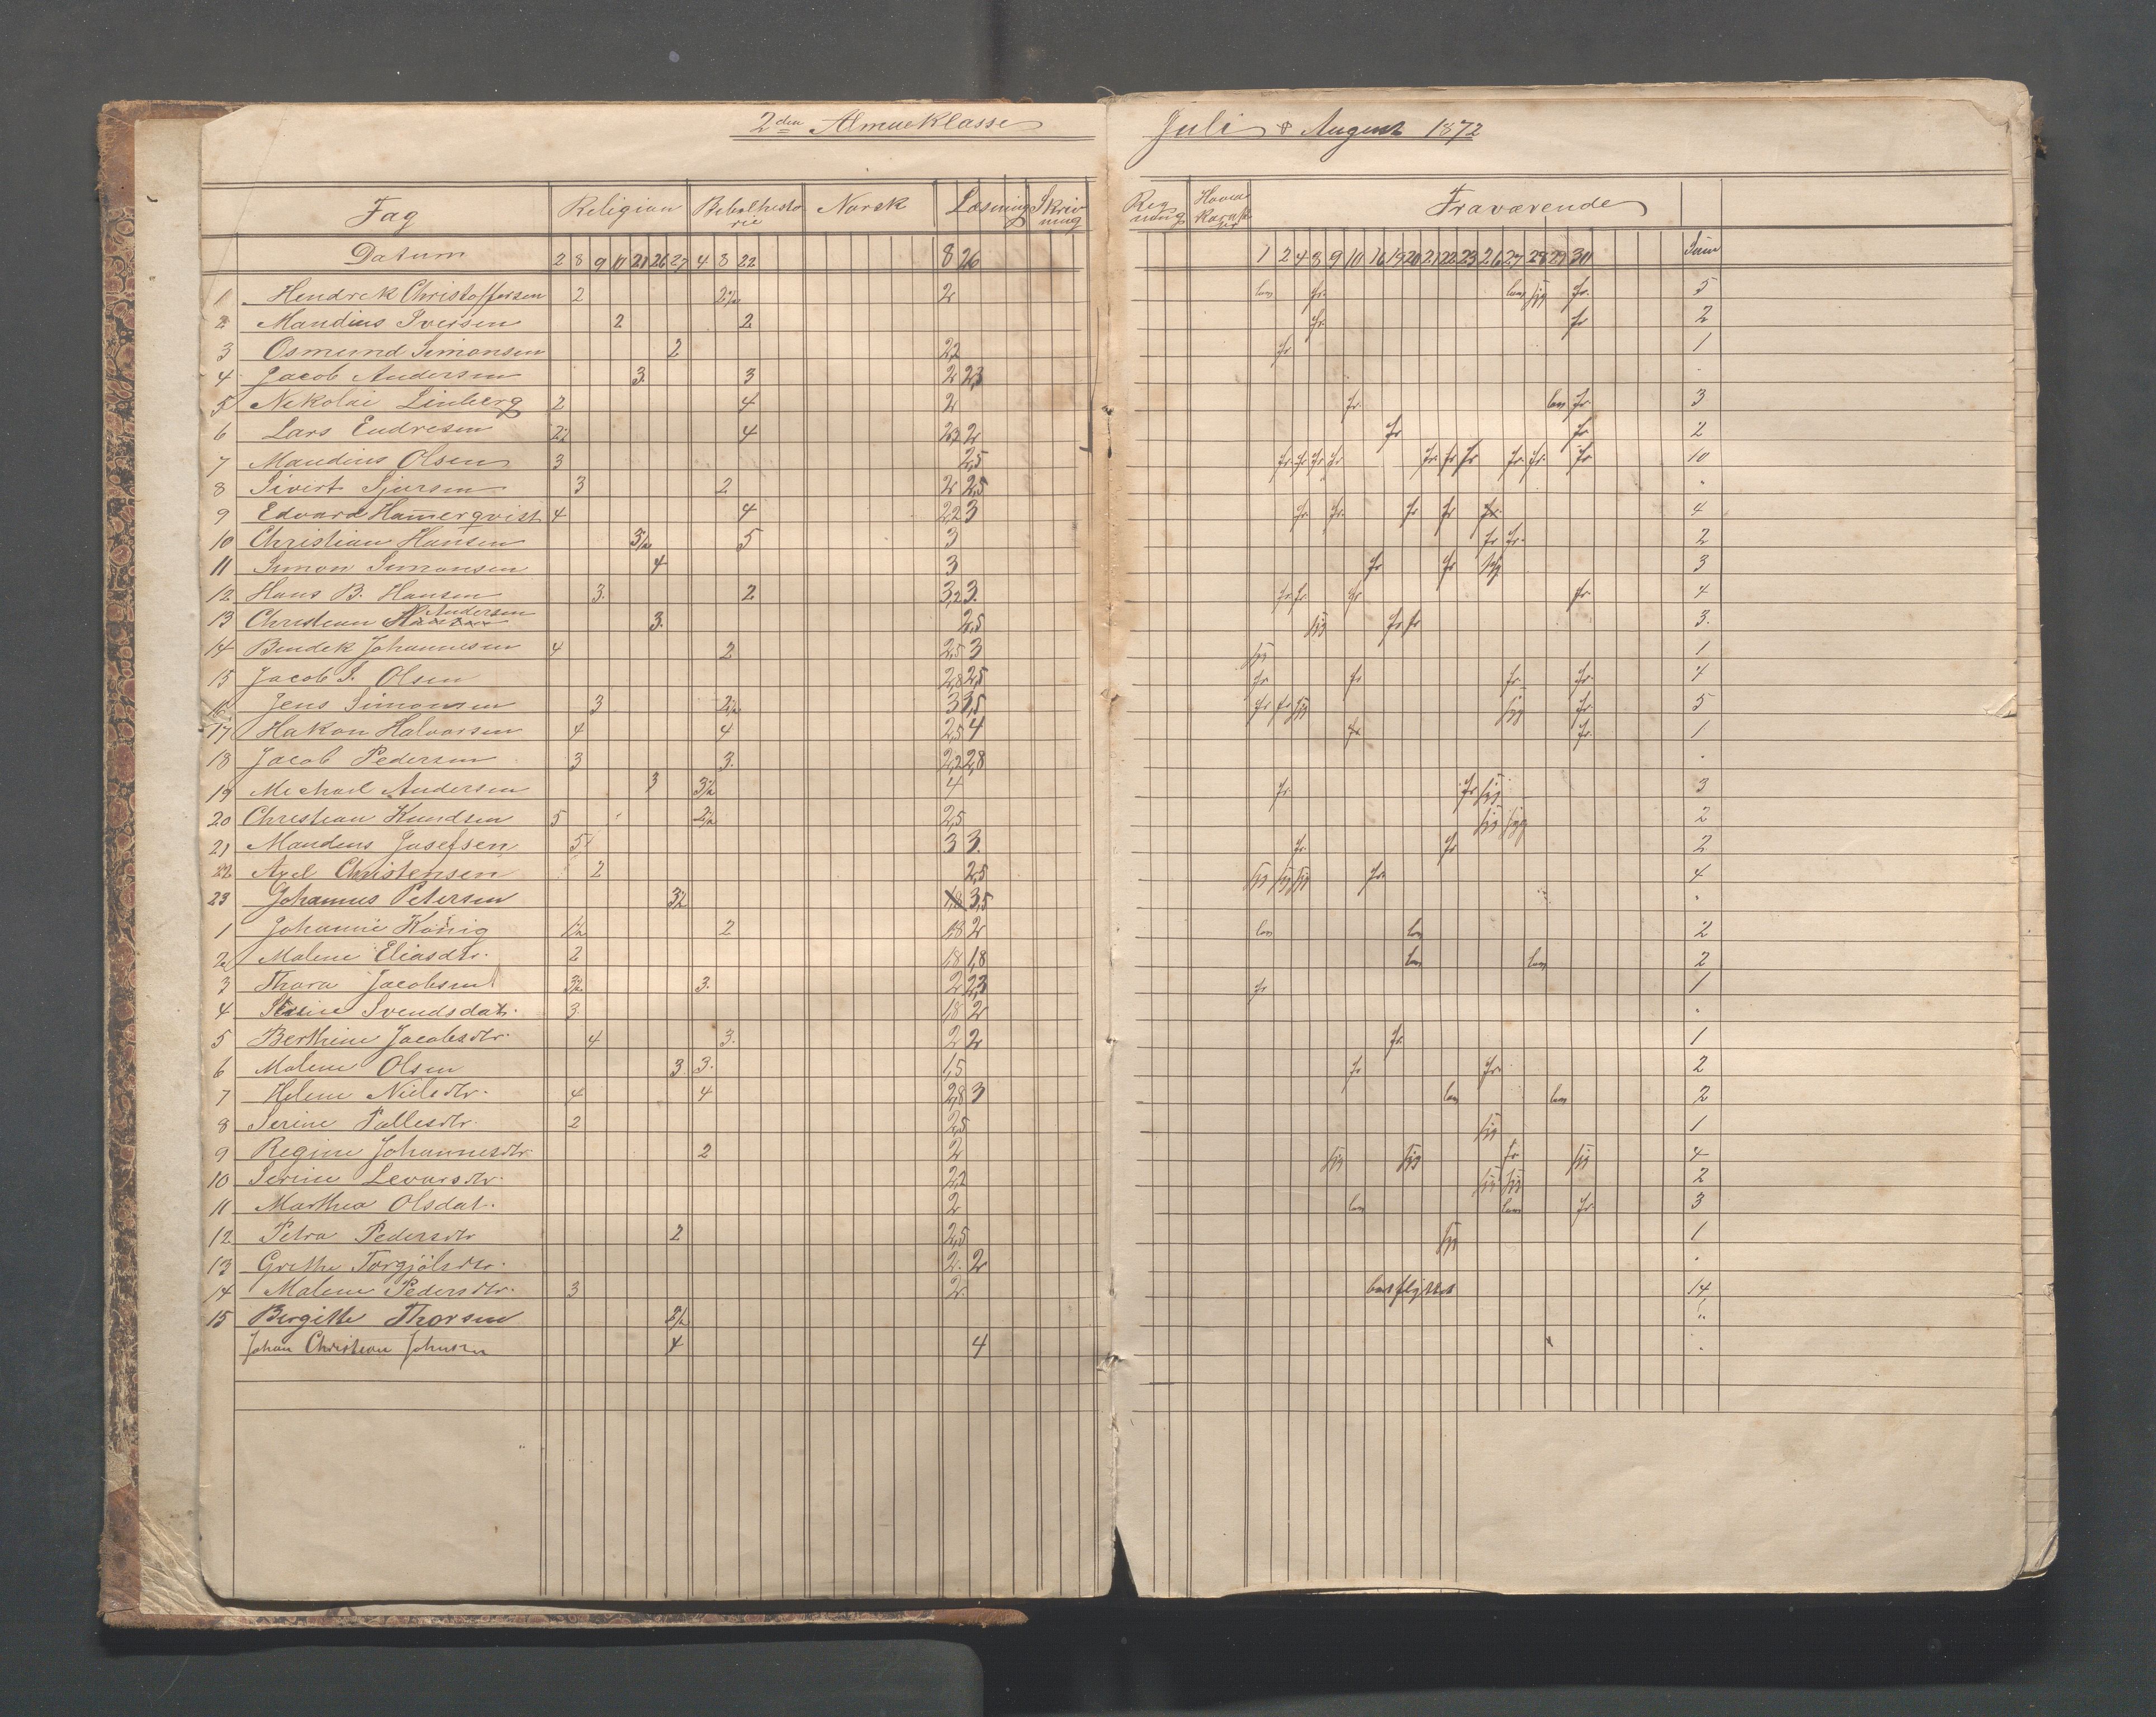 2den Almueklasse
Juli & August 1872
Fag Religion Bibelhistorie Norsk Læsning Skrivning Regning Hoved Karakter Fraværende
Datum 2 8 9 11 21 26 27 4 8 22 8 26 1 2 4 8 9 10 16 19 20 21 22 23 26 27 28 29 30 Sum
1 Hendrek Christoffersen 2 2½ 2 lov fr. lov syg fr. 5
2 Mandius Iversen 2 2 fr. fr 2
3 Osmund Simonsen 2 2,2 fr 1
4 Jacob Andersen 3. 3 2 2,3 .
5 Nikolai Linberg 2 4 2 fr. lov fr. 3
6 Lars Endresen 2½ 4 2,2 2 fr fr 2
7 Mandius Olsen 3 2,5 fr. fr fr fr fr. fr fr fr. fr. fr 10
8 Sivert Sjursen 3 2 2 2,5 .
9 Edvard Hamerqvist 4 4 2,2 3 fr. fr. fr fr fr. 4
10 Christian Hansen 3½ 5 3 fr fr. 2
11 Simon Simonsen 4 3 fr fr syg 3
12 Hans B. Hansen 3. 2 3,2 3. fr. fr. fr fr. 4
13 Christian Andersen 3. 2,5 syg fr fr 3.
14 Bendik Johannesen 4 2 2,5 3 syg 1
15 Jacob S. Olsen 2,8 2,5 fr. fr fr. fr. 4
16 Jens Simonsen 3 2½ 3 3,5 fr fr syg syg fr. 5
17 Hakon Halvorsen 4 4 2,5 4 fr fr. 1
18 Jacob Pedersen 3 3. 2,2 2,8 .
19 Michael Andersen 3 3½ 4 fr. fr syg 3
20 Christian Knudsen 5 2½ 2,5 syg syg 2
21 Mandius Josefsen 5 3 3. fr. fr 2
22 Axel Christensen 2 2,5 syg syg syg fr. 4
23 Johannes Petersen 3½ 1,8 3,5 .
1 Johanne König 1½ 2 1,8 2 lov lov 2
2 Malene Eliasdtr. 2 1,8 1,8 lov lov 2
3 Thora Jacobsen 3½ 3. 2 2,3 fr 1
4 Stine Svendsdatr. 3 1,8 2 .
5 Berthine Jacobsdtr. 4 3. 2 2 fr. 1
6 Malene Olsen 3 3. 1,5 fr fr. 2
7 Helene Nielsdtr. 4 4 2,8 3 lov lov 2
8 Serine Pallesdtr. 2 2,5 syg 1
9 Regine Johannesdtr. 2 2 syg syg fr syg 4
10 Serine Levorsdtr. 2,2 syg syg 2
11 Marthea Olsdat. 2 lov lov fr. 3
12 Petra Pedersdtr 2 2,5 syg 1
13 Grethe Torgjölsdtr. 2. 2 .
14 Malene Pedersdtr. 3 2 bortflyttet 14
15 Birgitte Thorsen 2½
Johan Christian Johnsen 4 4 .